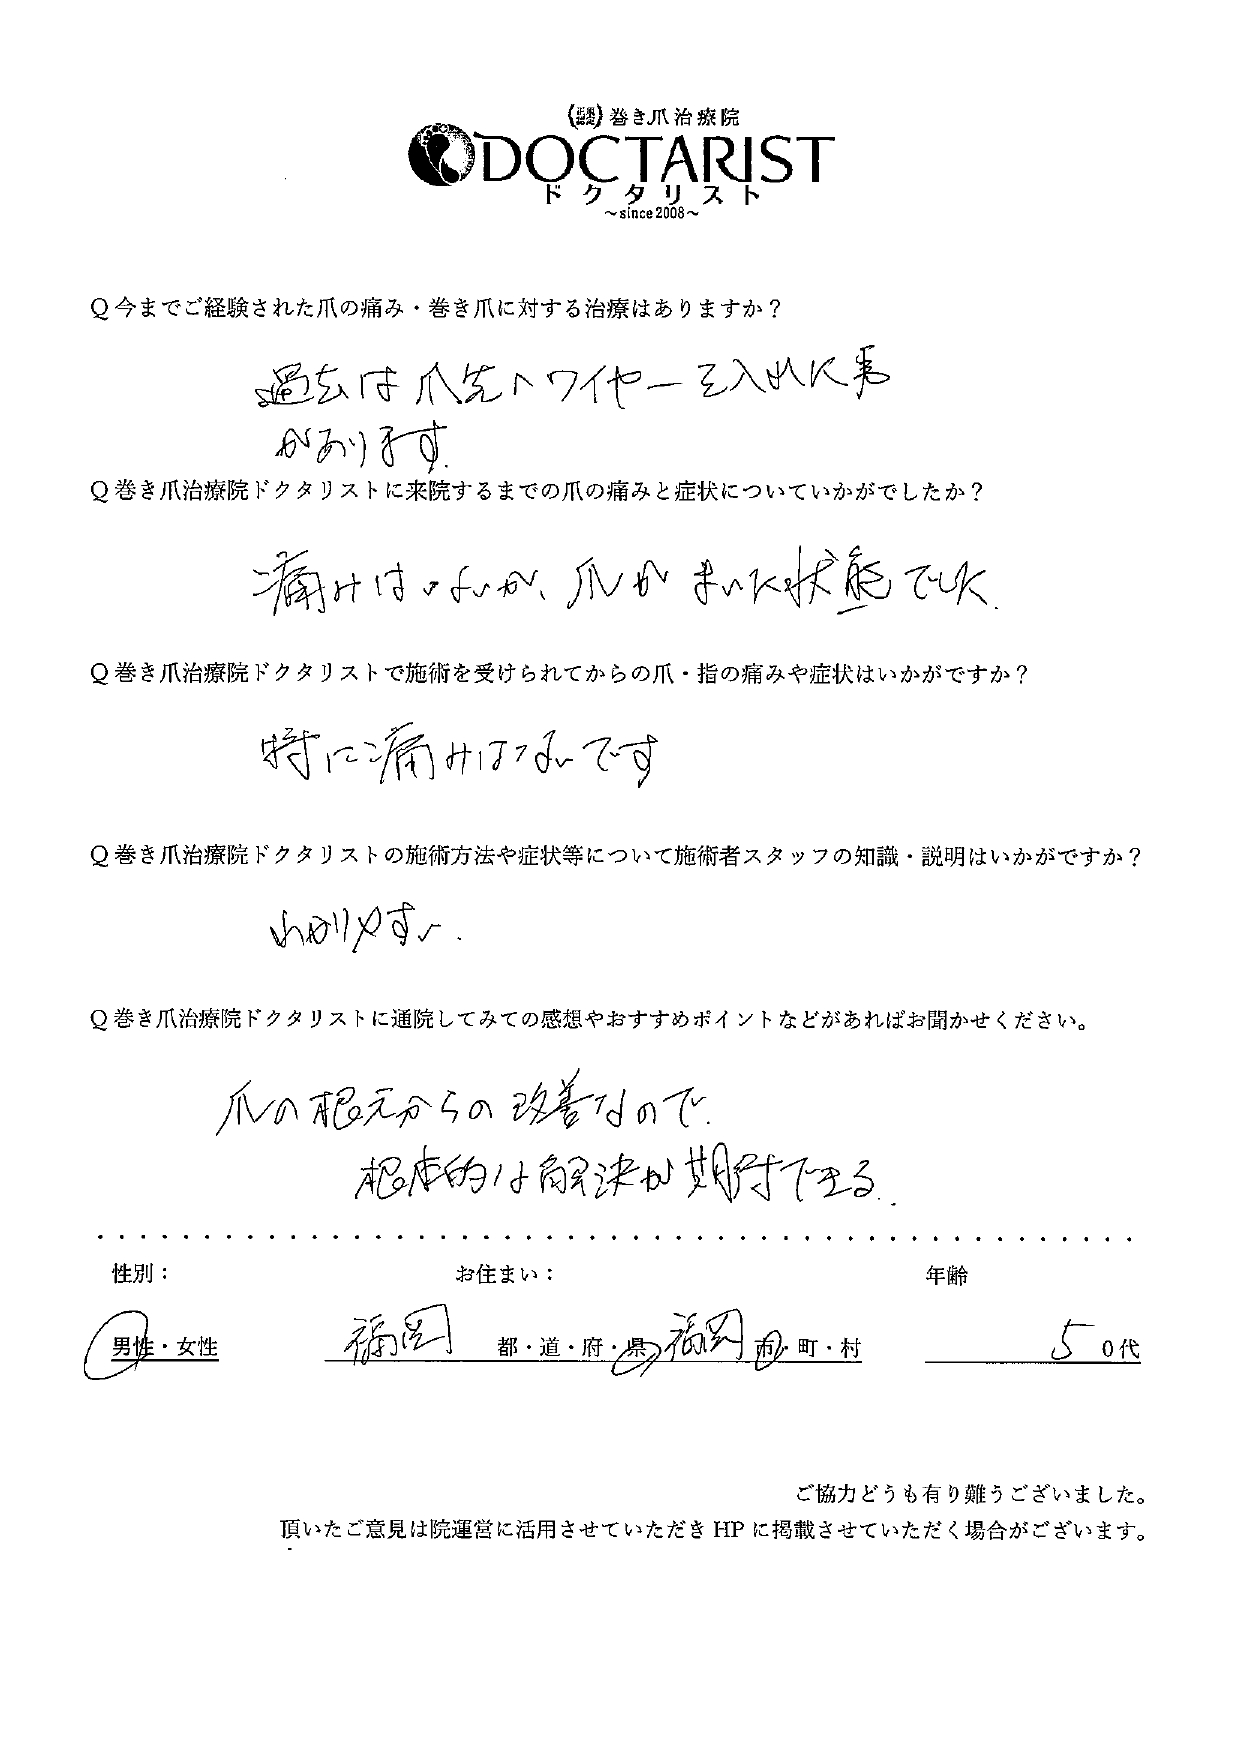 巻き爪治療院
DOCTARIST
ドクタリスト
～since2008～
Q 今までご経験された爪の痛み・巻き爪に対する治療はありますか？
過去は爪先へワイヤーを入れた事
があります.
Q 巻き爪治療院ドクタリストに来院するまでの爪の痛みと症状についていかがでしたか？
痛みはないが、爪がまいた状態でした.
Q 巻き爪治療院ドクタリストで施術を受けられてからの爪・指の痛みや症状はいかがですか？
特に痛みはないです
Q 巻き爪治療院ドクタリストの施術方法や症状等について施術者スタッフの知識・説明はいかがですか？
わかりやすい.
Q 巻き爪治療院ドクタリストに通院してみての感想やおすすめポイントなどがあればお聞かせください。
爪の根元からの改善なので.
根本的な解決が期待できる.
性別： お住まい： 年齢
男性・女性 福岡 都・道・府・県 福岡 市・町・村 5 0代
ご協力どうも有り難うございました。
頂いたご意見は院運営に活用させていただき HP に掲載させていただく場合がございます。